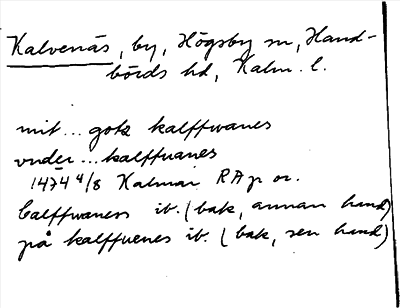 Kalvenäs, by, Högsby sn, Hand-
börds hd, Kalm. l.
mit... gotz kalffwanes
vnder... kalffuanes
1474 4/8 Kalmar RAp or.
Calffwaness ib. (bak, annan hand)
på kalffuenes ib. (bak, sen hand)